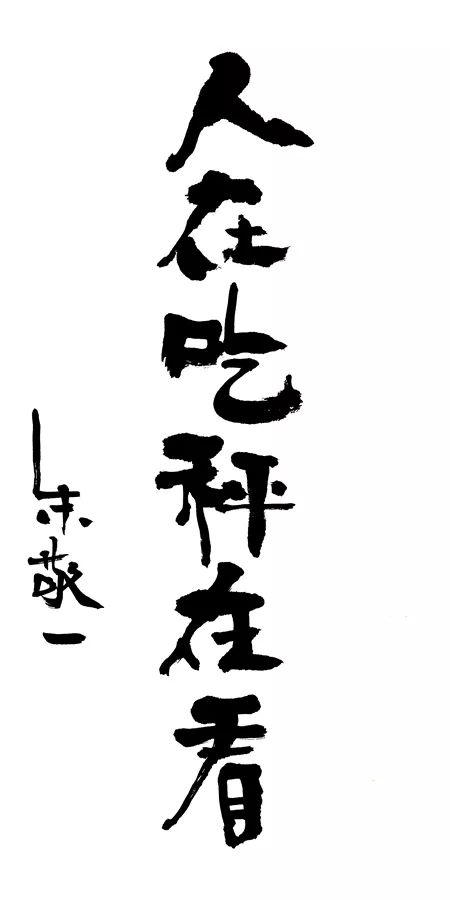 人在吃秤在看
朱敬一